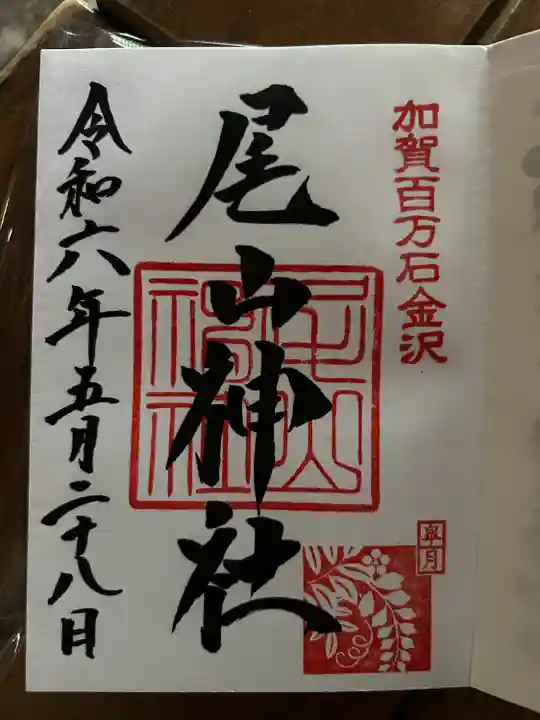 加賀百万石金沢
尾山神社
尾山神社
皐月
令和六年五月二十八日